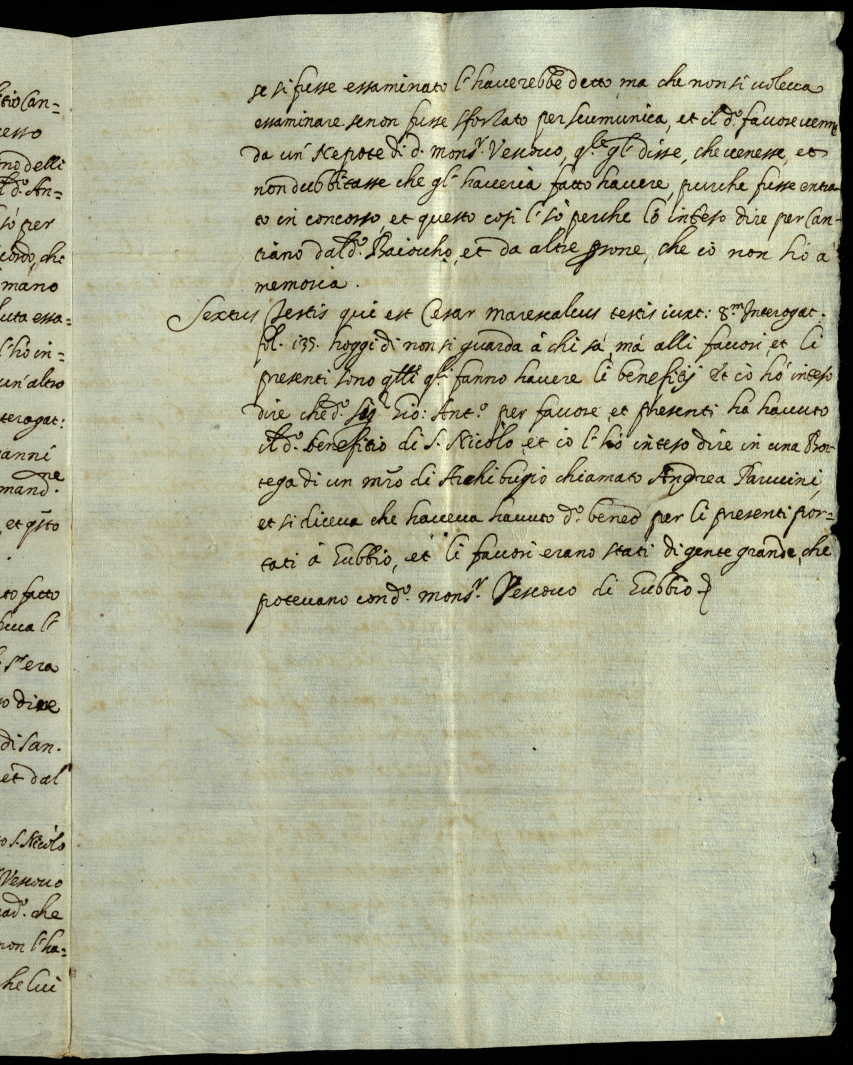 itio Can=
cesso
ano delli
ald.º An=
so per
cordo, che
mano
luta essa=
l'hò in=
un'altro
terogat:
anni
mand.ne
, et q̃sto
to facto
l'
era
o dire
di San.
et dal
o S. Nicolo
Vescovo
ad.º che
non l'ha=
he lui
se si fusse essaminato l'haverebbe detto, ma che non si voleva
essaminare se non fusse sforzato per scumunica, et il d.º favore venne
da un' Nepote di d. mons.r Vescovo, q.le gl' disse, che venesse, et
non dubbitasse che gl' haveria fatto havere, purche fusse entra
to in concorso, et questo cosi l'sò perche l'ò inteso dire per Can-
tiano dal d.º Baiocho, et da altre p̃sone, che io non hò à
memoria.
Sextus Testis qui est Cesar marescalcus testis iuxt: 8.m Interogat.
fol. 135. hoggi di non si guarda à chi sà, mà alli favori, et li
presenti sono q̃lli q.li fanno havere li benefitij et io hò inteso
dire che d.º Sig.r Gio: Ant.º per favore et presenti ha havuto
il d.º benefitio di S. Nicolo, et io l'hò inteso dire in una Bot-
tega di un m̃ro di Archibugio chiamato Andrea Paruccini,
et si diceva che haveva havuto d.º bened per li presenti por=
tati à Eubbio, et li favori erano stati di gente grande, che
potevano con d.º mons.r Vescovo di Eubbio